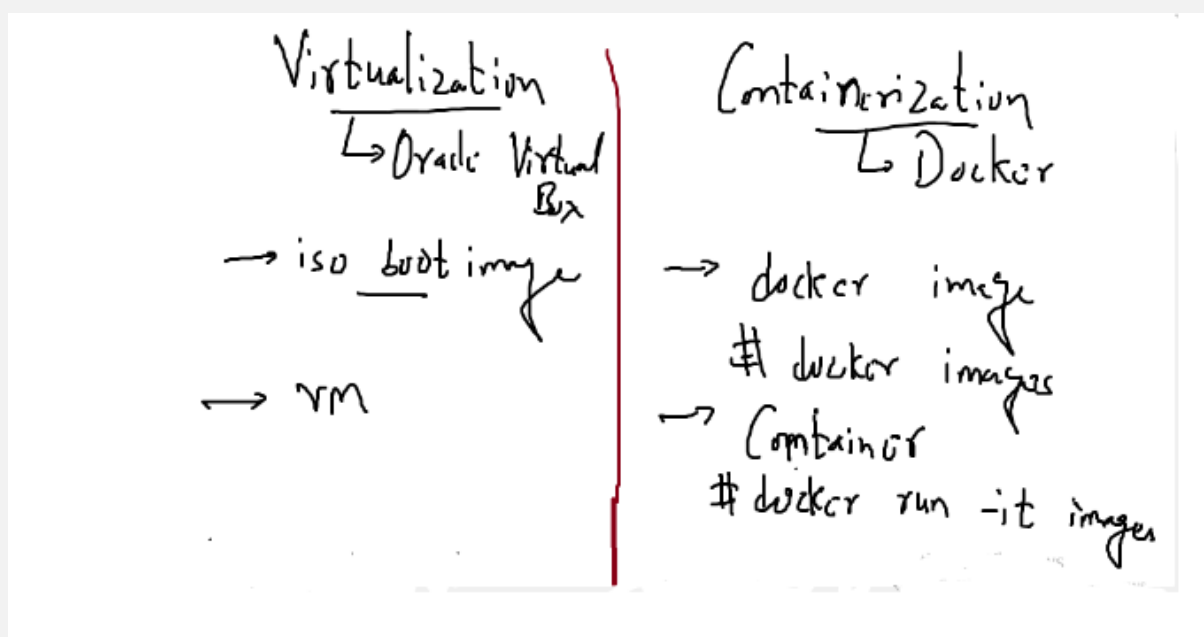 Virtualization
↳ Oracle Virtual
Box
→ iso boot image
→ VM
Containerization
↳ Docker
→ docker image
# docker images
→ Container
# docker run -it images